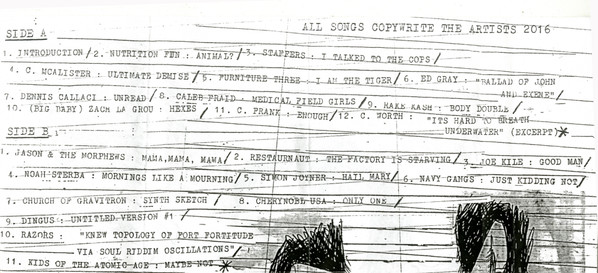 SIDE A
ALL SONGS COPYWRITE THE ARTISTS 2016
1. INTRODUCTION/2. NUTRITION FUN : ANIMAL?/3. STAFFERS : I TALKED TO THE COPS/
4. C. MCALISTER : ULTIMATE DEMISE/5. FURNITURE THREE : I AM THE TIGER/6. ED GRAY: "BALLAD OF JOHN
AND EYENE"/
7. DENNIS CALLACI : UNREAD/8. CALEB FRAID : MEDICAL FIELD GIRLS/9. RAKE KASH : BODY DOUBLE/
10. (BIG BABY) ZACH LA GROU : HEYES/11. C. FRANK : ENOUGH/12. C. WORTH : "ITS HARD TO BREATH
UNDERWATER" (EXCERPT)*
SIDE B :
1. JASON & THE MORPHEWS : MAMA, MAMA, MAMA/2. RESTAURNAUT : THE FACTORY IS STARVING/3. JOE KILE : GOOD MAN/
4. NOAH STERBA : MORNINGS LIKE A MOURNING/5. SIMON JOINER : HAIL MARY/6. NAVY GANGS : JUST KIDDING NOT/
7. CHURCH OF GRAVITRON : SYNTH SKETCH/ 8. CHERYNOBL USA : ONLY ONE/
9. DINGUS : UNTITLED VERSION #1/
10. RAZORS : "KNEW TOPOLOGY OF PORT FORTITUDE
VIA SOUL RIDDIM OSCILLATIONS"/
11. KIDS OF THE ATOMIC AGE : MAYBE NOT *